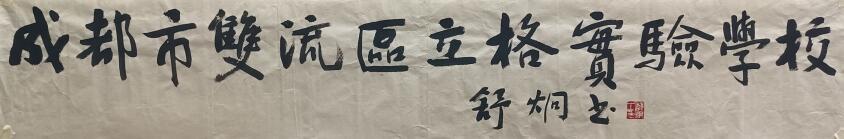 成都市雙流區立格實驗學校
舒炯书